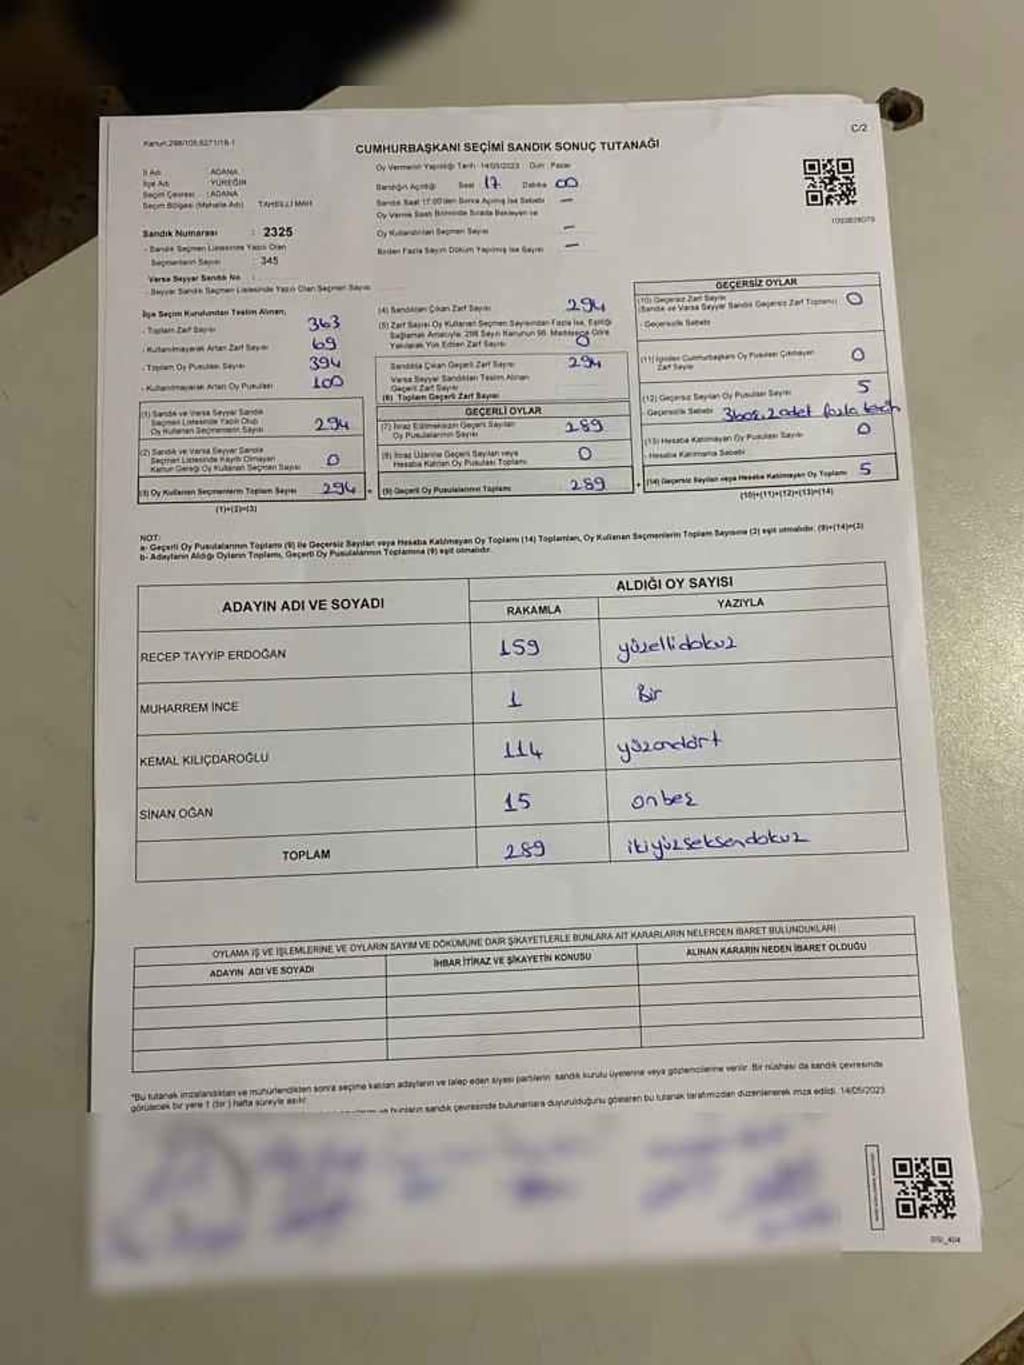 Kanun:298/105,6271/18-1
C/2
CUMHURBAŞKANI SEÇİMİ SANDIK SONUÇ TUTANAĞI
İl Adı : ADANA
İlçe Adı : YÜREĞİR
Seçim Çevresi : ADANA
Seçim Bölgesi (Mahalle Adı) TAHSİLLİ MAH
Sandık Numarası : 2325
- Sandık Seçmen Listesinde Yazılı Olan
Seçmenlerin Sayısı : 345
Varsa Seyyar Sandık No :
- Seyyar Sandık Seçmen Listesinde Yazılı Olan Seçmen Sayısı
Oy Vermenin Yapıldığı Tarih : 14/05/2023 Gün : Pazar
Sandığın Açıldığı Saat 17 Dakika 00
Sandık Saat 17:00'den Sonra Açılmış İse Sebebi —
Oy Verme Saati Bitiminde Sırada Bekleyen ve
Oy Kullandırılan Seçmen Sayısı —
Birden Fazla Sayım Döküm Yapılmış İse Sayısı —
İlçe Seçim Kurulundan Teslim Alınan;
- Toplam Zarf Sayısı 363
- Kullanılmayarak Artan Zarf Sayısı 69
- Toplam Oy Pusulası Sayısı 394
- Kullanılmayarak Artan Oy Pusulası 100
(1) Sandık ve Varsa Seyyar Sandık
Seçmen Listesinde Yazılı Olup
Oy Kullanan Seçmenlerin Sayısı 294
(2) Sandık ve Varsa Seyyar Sandık
Seçmen Listesinde Kayıtlı Olmayan
Kanun Gereği Oy Kullanan Seçmen Sayısı 0
(3) Oy Kullanan Seçmenlerin Toplam Sayısı 294
(1)+(2)=(3)
(4) Sandıktan Çıkan Zarf Sayısı 294
(5) Zarf Sayısı Oy Kullanan Seçmen Sayısından Fazla İse, Eşitliği
Sağlamak Amacıyla, 298 Sayılı Kanunun 98. Maddesine Göre
Yakılarak Yok Edilen Zarf Sayısı 0
Sandıkta Çıkan Geçerli Zarf Sayısı 294
Varsa Seyyar Sandıktan Teslim Alınan
Geçerli Zarf Sayısı
(6) Toplam Geçerli Zarf Sayısı
GEÇERLİ OYLAR
(7) İtiraz Edilmeksizin Geçerli Sayılan
Oy Pusulalarının Sayısı 289
(8) İtiraz Üzerine Geçerli Sayılan veya
Hesaba Katılan Oy Pusulası Toplamı 0
(9) Geçerli Oy Pusulalarının Toplamı 289
GEÇERSİZ OYLAR
(10) Geçersiz Zarf Sayısı
(Sandık ve Varsa Seyyar Sandık Geçersiz Zarf Toplamı) 0
- Geçersizlik Sebebi
(11) İçinden Cumhurbaşkanı Oy Pusulası Çıkmayan
Zarf Sayısı 0
(12) Geçersiz Sayılan Oy Pusulası Sayısı 5
- Geçersizlik Sebebi 3boş, 2 adet fazla tercih
(13) Hesaba Katılmayan Oy Pusulası Sayısı 0
- Hesaba Katılmama Sebebi
(14) Geçersiz Sayılan veya Hesaba Katılmayan Oy Toplamı 5
(10)+(11)+(12)+(13)=(14)
NOT:
a- Geçerli Oy Pusulalarının Toplamı (9) ile Geçersiz Sayılan veya Hesaba Katılmayan Oy Toplamı (14) Toplamları, Oy Kullanan Seçmenlerin Toplam Sayısına (3) eşit olmalıdır. (9)+(14)=(3)
b- Adayların Aldığı Oyların Toplamı, Geçerli Oy Pusulalarının Toplamına (9) eşit olmalıdır.
ADAYIN ADI VE SOYADI
ALDIĞI OY SAYISI
RAKAMLA YAZIYLA
RECEP TAYYİP ERDOĞAN 159 yüzellidokuz
MUHARREM İNCE 1 Bir
KEMAL KILIÇDAROĞLU 114 yüzondört
SİNAN OĞAN 15 onbeş
TOPLAM 289 ikiyüzseksendokuz
OYLAMA İŞ VE İŞLEMLERİNE VE OYLARIN SAYIM VE DÖKÜMÜNE DAİR ŞİKAYETLERLE BUNLARA AİT KARARLARIN NELERDEN İBARET BULUNDUKLARI
ADAYIN ADI VE SOYADI İHBAR İTİRAZ VE ŞİKAYETİN KONUSU ALINAN KARARIN NEDEN İBARET OLDUĞU
*Bu tutanak imzalandıktan ve mühürlendikten sonra seçime katılan adayların ve talep eden siyasi partilerin sandık kurulu üyelerine veya gözlemcilerine verilir. Bir nüshası da sandık çevresinde
görülecek bir yere 1 (bir) hafta süreyle asılır.
bunların sandık çevresinde bulunanlara duyurulduğunu gösteren bu tutanak tarafımızdan düzenlenerek imza edildi. 14/05/2023